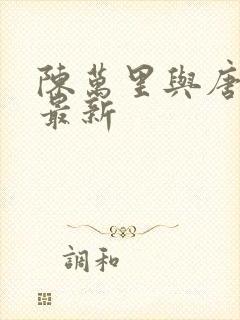 陳萬里與唐
最新
調和